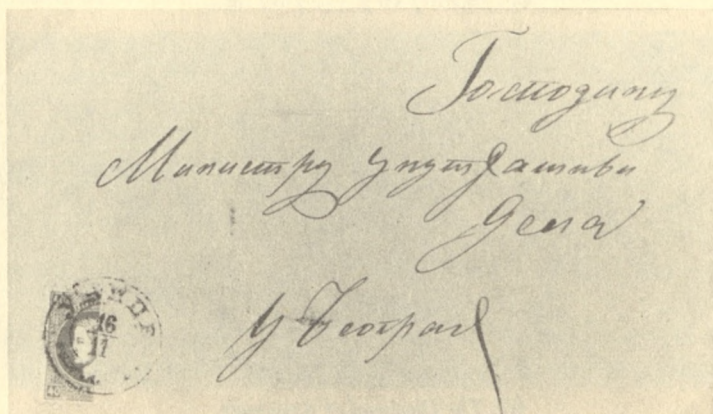 Господину
Министру унутрашњи
Дела
у Београд
16
11